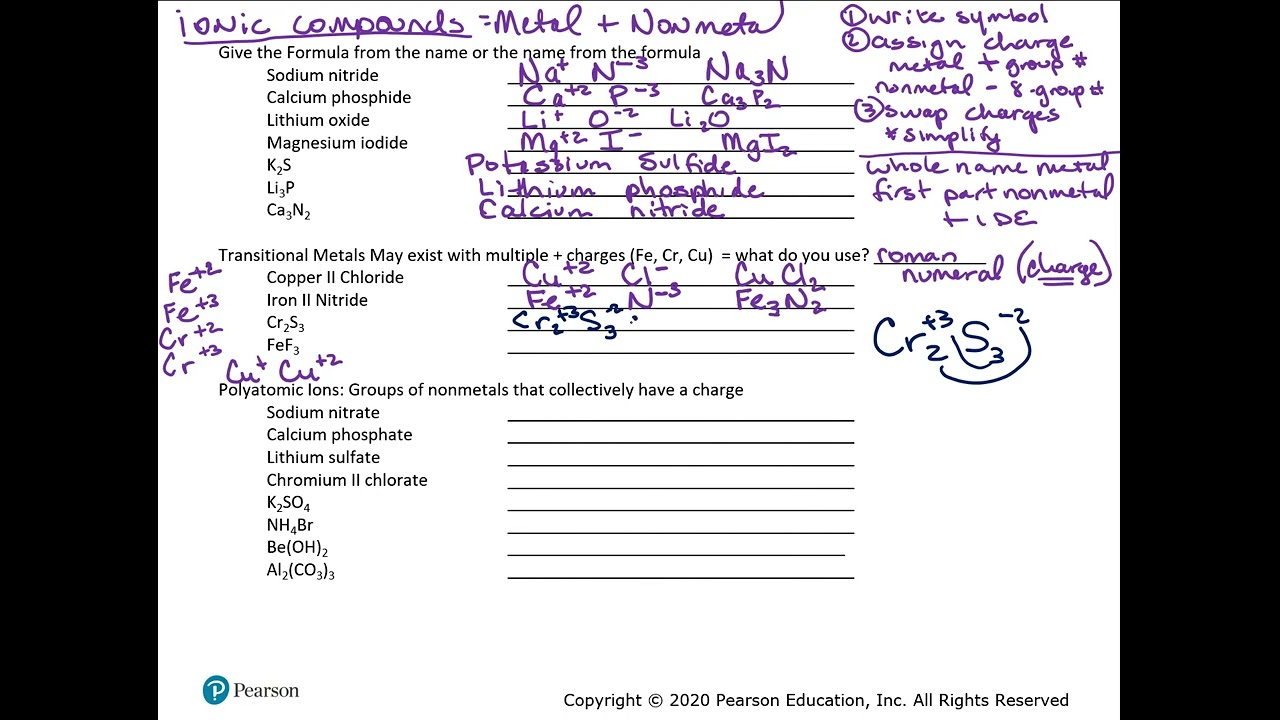 ionic compounds = Metal + Nonmetal
① write symbol
② assign charge
metal + group #
nonmetal - 8-group #
③ swap charges
* simplify
whole name metal
first part nonmetal
+ IDE
Give the Formula from the name or the name from the formula
Sodium nitride Na⁺ N⁻³ Na₃N
Calcium phosphide Ca⁺² P⁻³ Ca₃P₂
Lithium oxide Li⁺ O⁻² Li₂O
Magnesium iodide Mg⁺² I⁻ MgI₂
K₂S Potassium Sulfide
Li₃P Lithium phosphide
Ca₃N₂ Calcium nitride
Transitional Metals May exist with multiple + charges (Fe, Cr, Cu) = what do you use? roman
numeral (charge)
Copper II Chloride Cu⁺² Cl⁻ CuCl₂
Iron II Nitride Fe⁺² N⁻³ Fe₃N₂
Cr₂S₃ Cr₂⁺³S₃⁻²
FeF₃
Fe⁺²
Fe⁺³
Cr⁺²
Cr⁺³
Cu⁺ Cu⁺²
Cr₂⁺³S₃⁻²
Polyatomic Ions: Groups of nonmetals that collectively have a charge
Sodium nitrate
Calcium phosphate
Lithium sulfate
Chromium II chlorate
K₂SO₄
NH₄Br
Be(OH)₂
Al₂(CO₃)₃
Pearson
Copyright © 2020 Pearson Education, Inc. All Rights Reserved